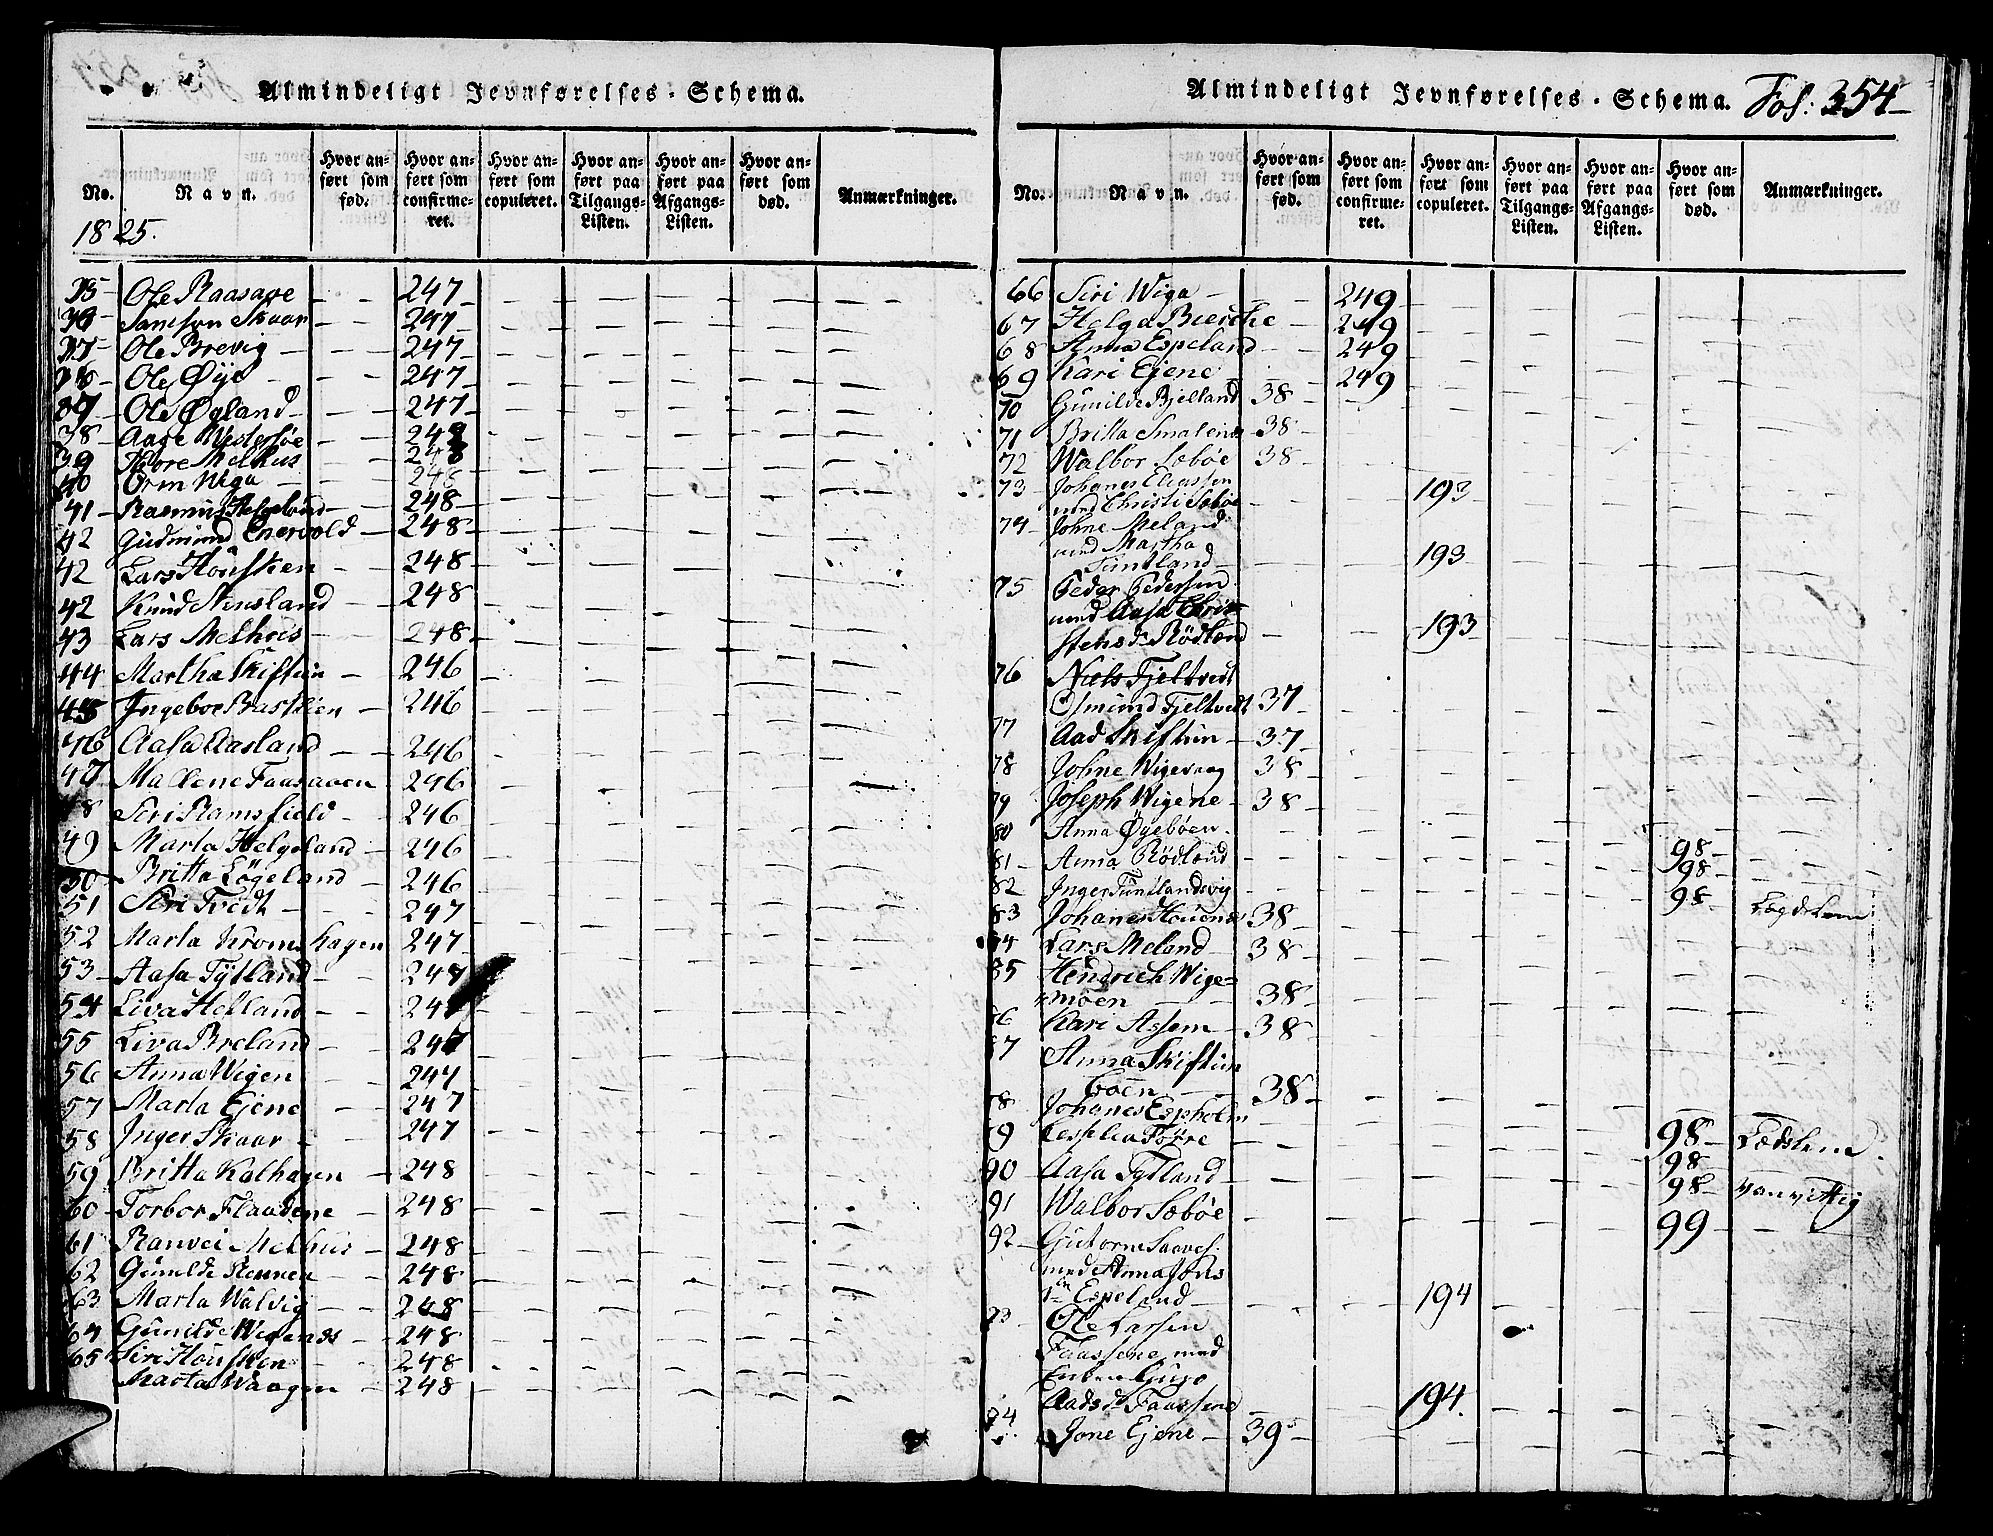 Almindeligt Jevnførelses-Schema.
No. Navn. Hvor anført som fød. Hvor anført som confirmeret. Hvor anført som copuleret. Hvor anført paa Tilgangs-Listen. Hvor anført paa Afgangs-Listen. Hvor anført som død. Anmærkninger.
1825.
35 Ole Raasaae 247
36 Samson Skaar 247
37 Ole Brevig 247
38 Ole Øye 247
37 Ole Øgland 247
38 Aage Westersøe 248
39 Tore Melhus 248
40 Orm Wiga 248
41 Rasmus Helgeland 248
42 Gudmund Enervold 248
42 Lars Housken 248
42 Knud Stensland 248
43 Lars Melhuis 248
44 Martha Skiftun 246
45 Ingebor Baskien 246
46 Aasa Aasland 246
47 Mallene Faasaaen 246
48 Siri Ramsfield 246
49 Marta Helgeland 246
50 Britta Løgeland 246
51 Siri Tvedt 247
52 Marta Kromshagen 247
53 Aasa Tytland 247
54 Liva Helland 247
55 Liva Breland 247
56 Anna Wigen 247
57 Marta Ejene 247
58 Inger Skaar 247
59 Britta Kalhagen 248
60 Torbor Flaadene 248
61 Ranvei Melhus 248
62 Gunilde Rennen 248
63 Marta Walvig 248
64 Gunilde Wigenæs 248
65 Siri Housken 248
Marta Waagen 248
Almindeligt Jevnførelses-Schema. Fol: 354
No. Navn. Hvor anført som fød. Hvor anført som confirmeret. Hvor anført som copuleret. Hvor anført paa Tilgangs-Listen. Hvor anført paa Afgangs-Listen. Hvor anført som død. Anmærkninger.
66 Siri Wiga 249
67 Helga Bierche 249
68 Anna Espeland 249
69 Kari Ejene 249
70 Gunilde Bjelland 38
71 Britta Smalenæs 38
72 Walbor Søbøe 38
73 Johanes Eliassen
med Christi Søbøe 193
74 Johne Meland
med Martha
Tuntland 193
75 Peder Pedersen
med Aasa Chri
stensd. Rødland 193
76 Niels Fjeltvedt
Osmund Fjeltvedt 37
77 Aad Skiftun 37
78 Johne Wigevaag 38
79 Joseph Wigene 38
80 Anna Øgebøen 98
81 Anna Rødland 98
82 Inger Tuntlandsvig 98 Lægdslem
83 Johanes Houenæs 38
84 Lars Meland 38
85 Hendrich Wige=
moen 38
86 Kari Assem 38
87 Anna Skiftun
boen 38
78 Johanes Espholm 98 Lædslem
79 CesseliaFøyre 98
90 Aasa Tytland 98 vanvittig
91 Walbor Søbøe 99
92 Gutorm Saaves.
med Anna Jons
Espeland 194
93 Ole Larsen
Faassene med
Enken Guro
Aadsd. Faassene 194.
94 Jone Ejene 39